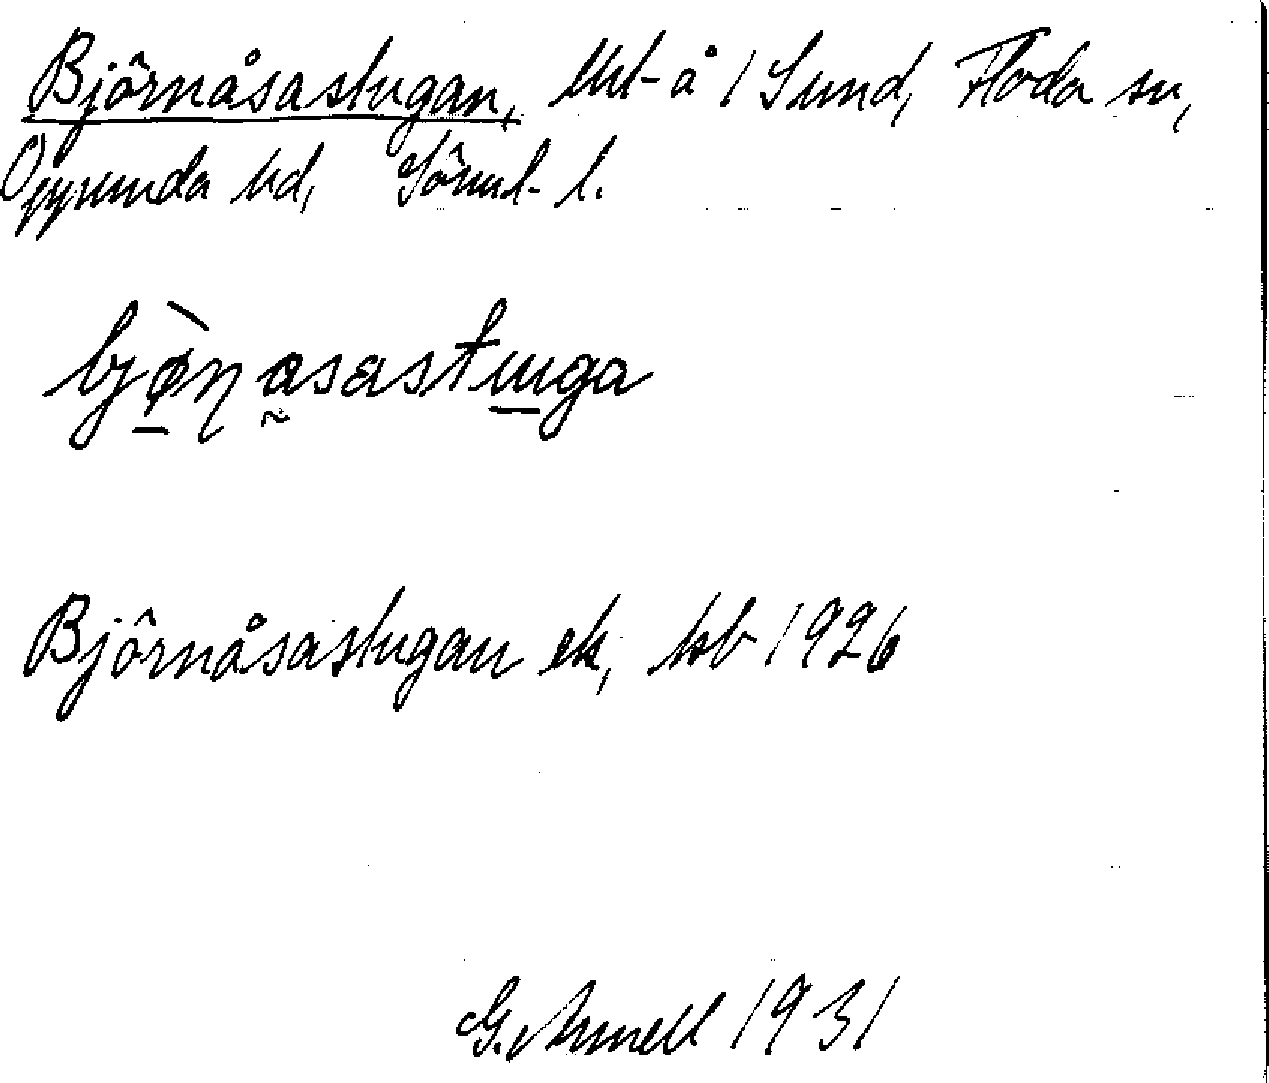 Björnåsastugan, lht å 1 Sund, Floda sn,
Oppunda hd, Söml. l.
bjø̀ṇasastuga
Björnåsastugan ek, hb 1926
G. Arnell 1931